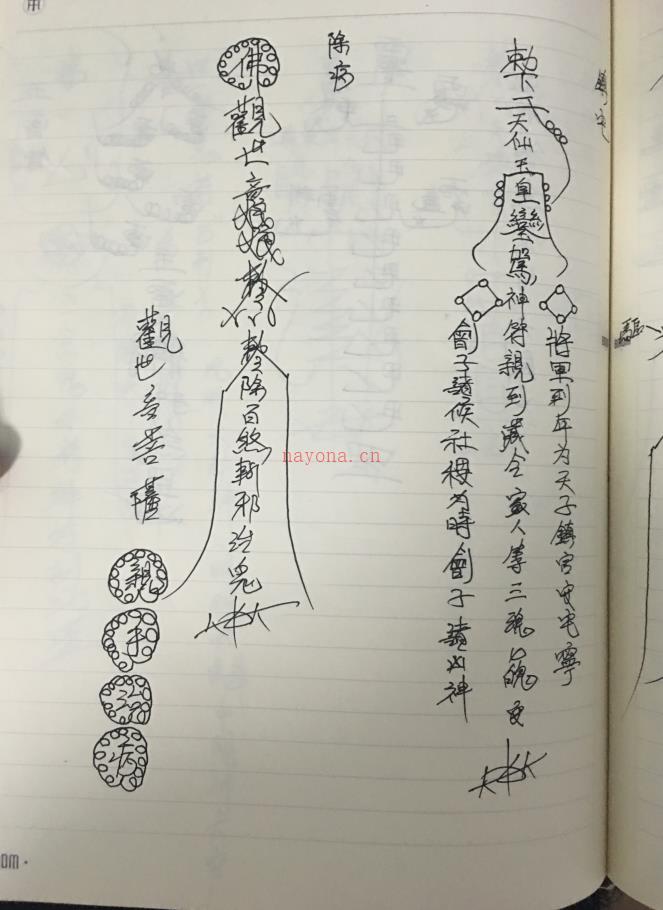 鎮宅
將軍到年为天子鎮宮安宅寧
敕下天仙玉皇鑾駕神符親到
合家人等三魂
會子諸候社稷为時會子諸凶神
除病
佛觀世音
敕除百煞斬邪治鬼
觀世音菩薩親手治病
驅
nayona.cn